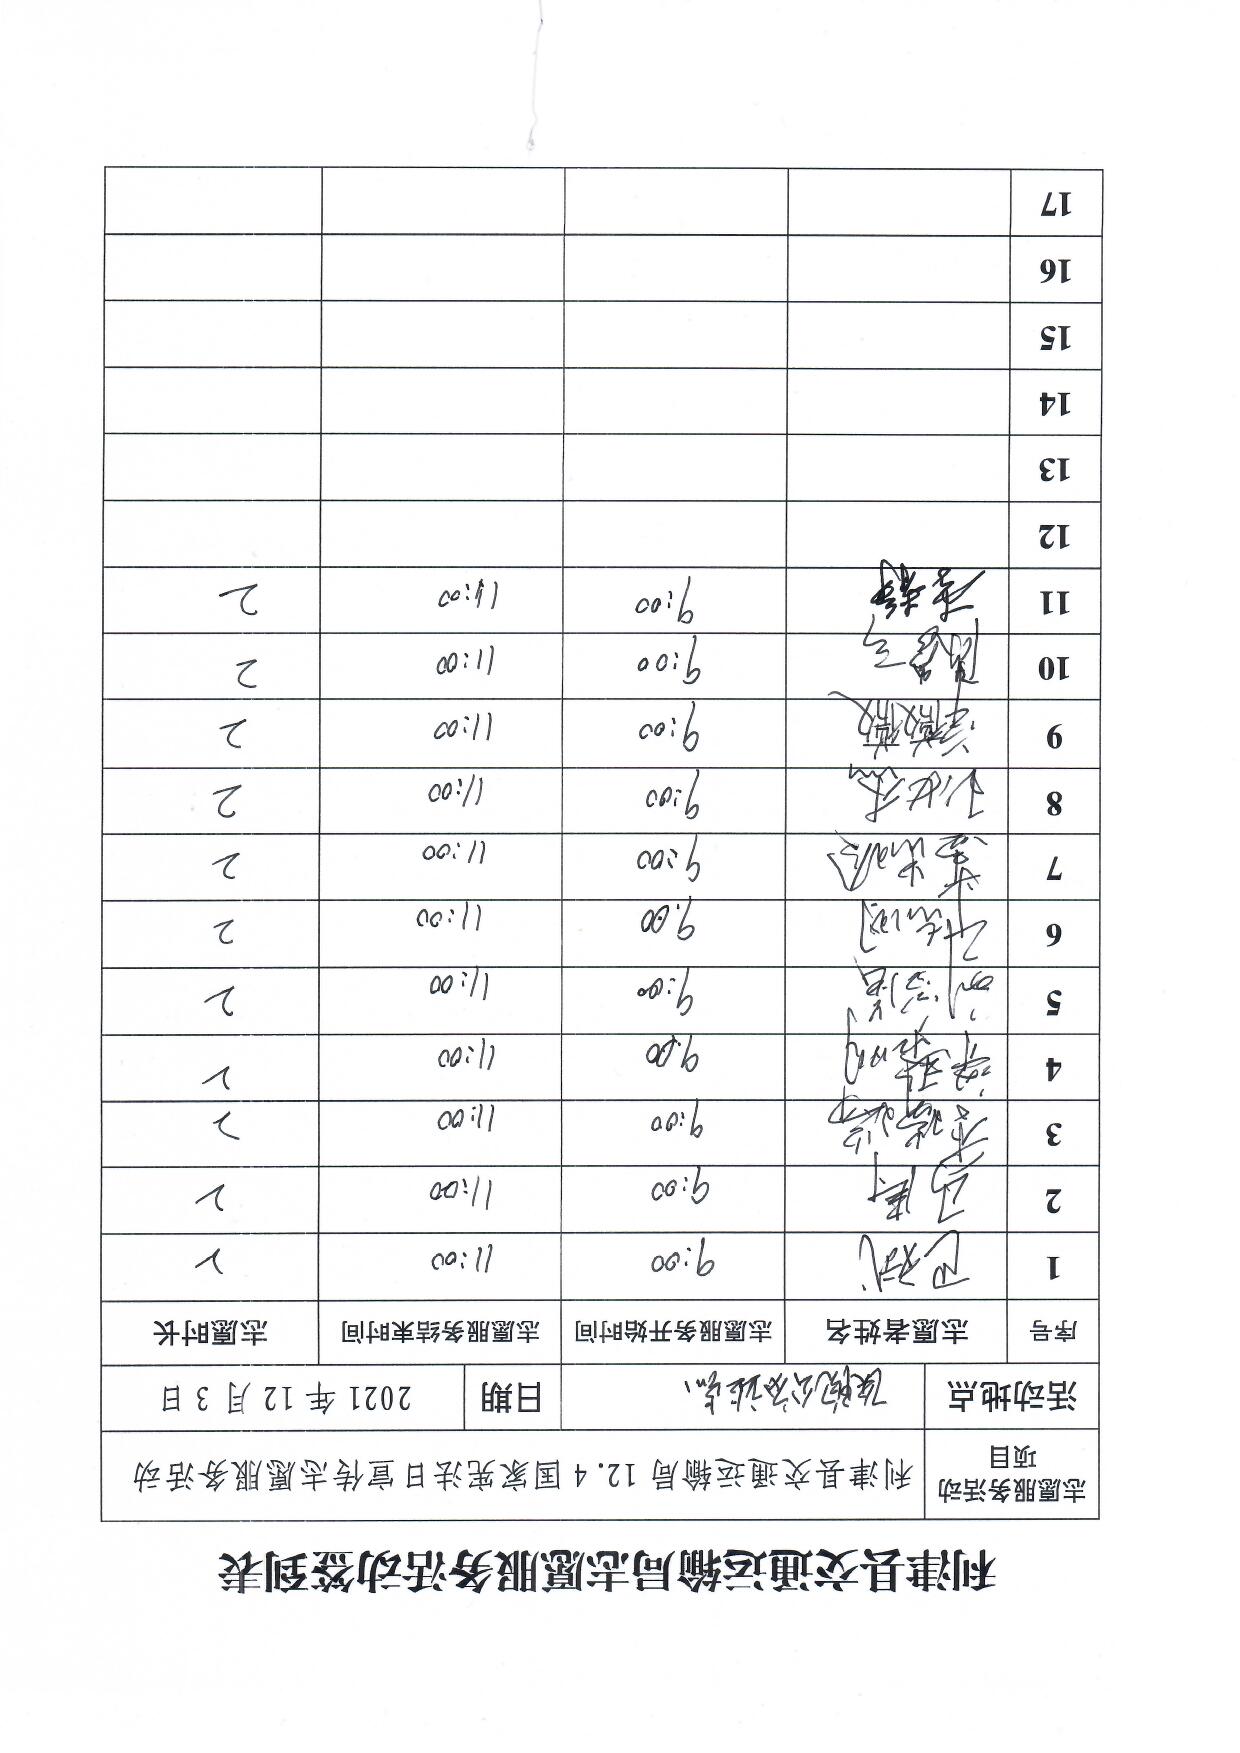 利津县交通运输局志愿服务活动签到表
志愿服务活动
项目
利津县交通运输局 12.4 国家宪法日宣传志愿服务活动
活动地点
日期
2021 年 12 月 3 日
序号 志愿者姓名 志愿服务开始时间 志愿服务结束时间 志愿时长
1 9:00 11:00 2
2 9:00 11:00 2
3 9:00 11:00 2
4 9:00 11:00 2
5 9:00 11:00 2
6 9:00 11:00 2
7 9:00 11:00 2
8 9:00 11:00 2
9 9:00 11:00 2
10 9:00 11:00 2
11 9:00 11:00 2
12
13
14
15
16
17